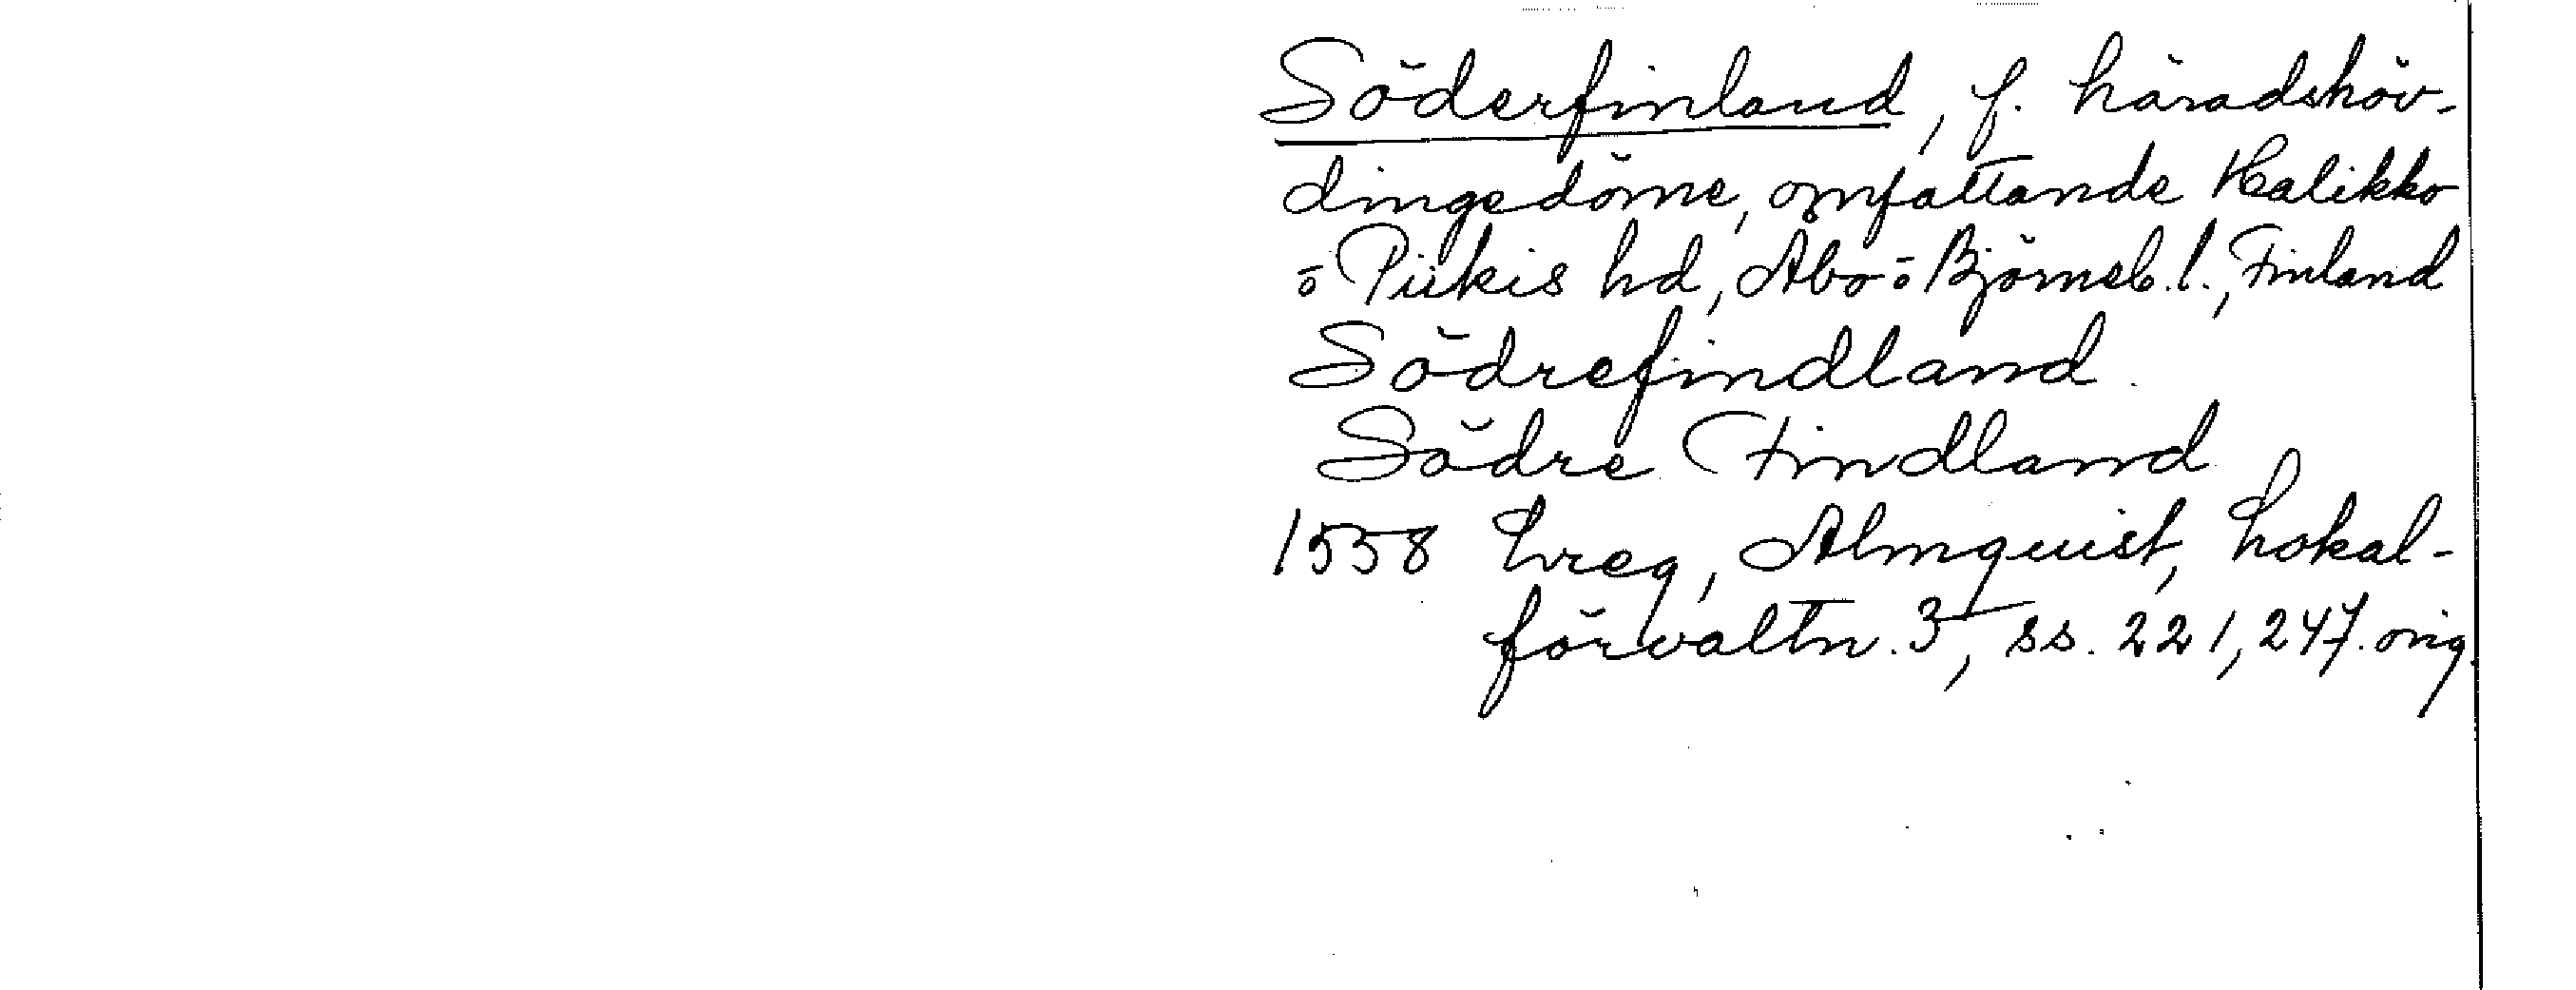 Söderfinland, f. häradshöv-
dingedöme, omfattande Halikko
o Piikis hd, Åbo o Björneb. l., Finland
Södrefindland.
Södre Findland
1558 Lreg, Almquist, Lokal-
förvaltn. 3, ss. 221, 247. orig.